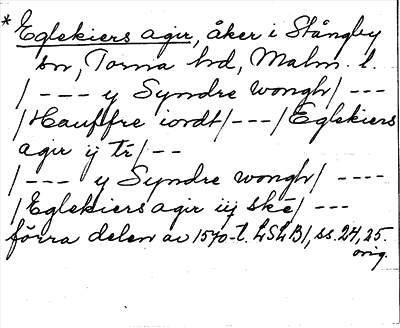 * Eglekiers agir, åker i Stångby
sn, Torna hd, Malm. l.
/ --- y Syndre wongh/ ---
/Hauffre iordt/---/Eglekiers
agir ij tr/--
/ --- y Syndre wongh/ ----
/Eglekiers agir iij ske/ ---
förra delen av 1570-t. LSLB1, ss. 24, 25.
orig.